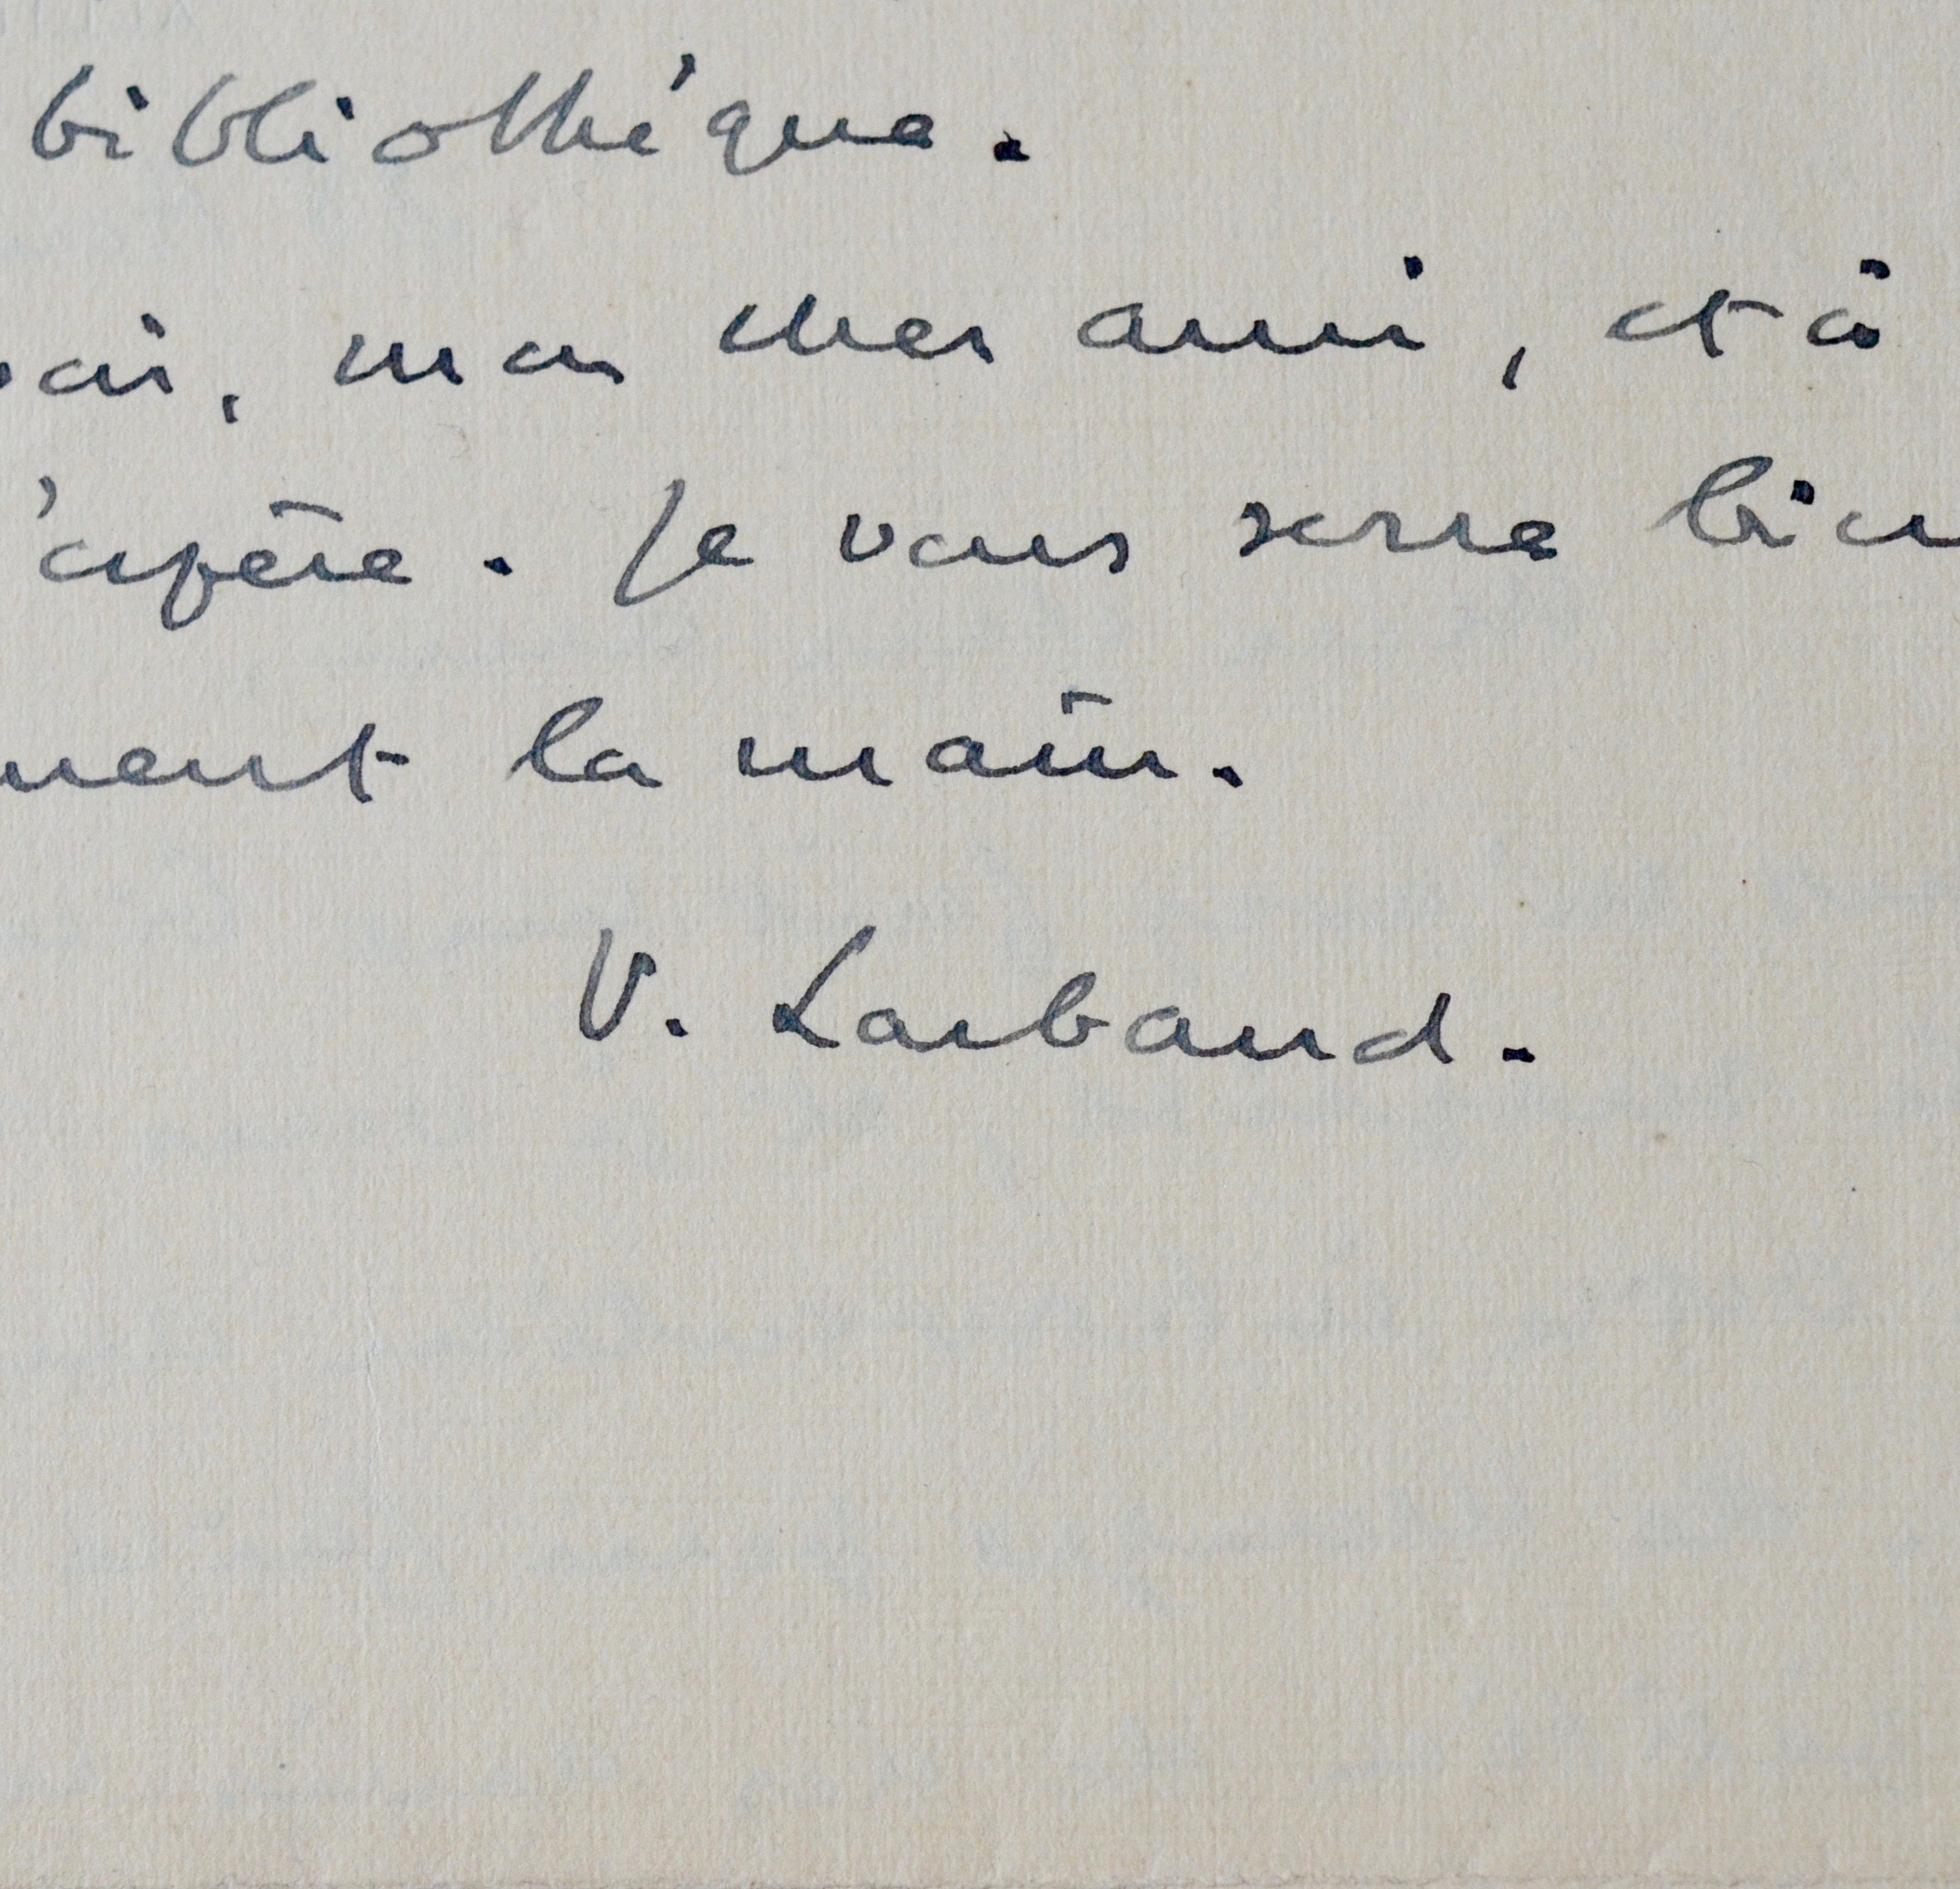 bibliothèque.
oir, mon cher ami, et à
'espère. Je vous serre bien
ment la main.
V. Larbaud.